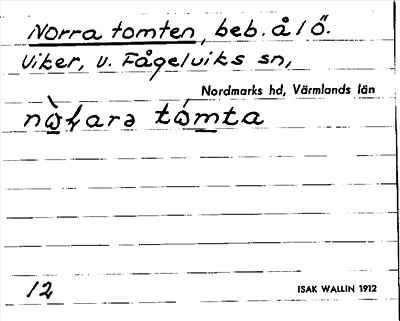 Norra tomten, beb. å 1 Ö.
Viker, V. Fågelviks sn,
Nordmarks hd, Värmlands län
12
ISAK WALLIN 1912